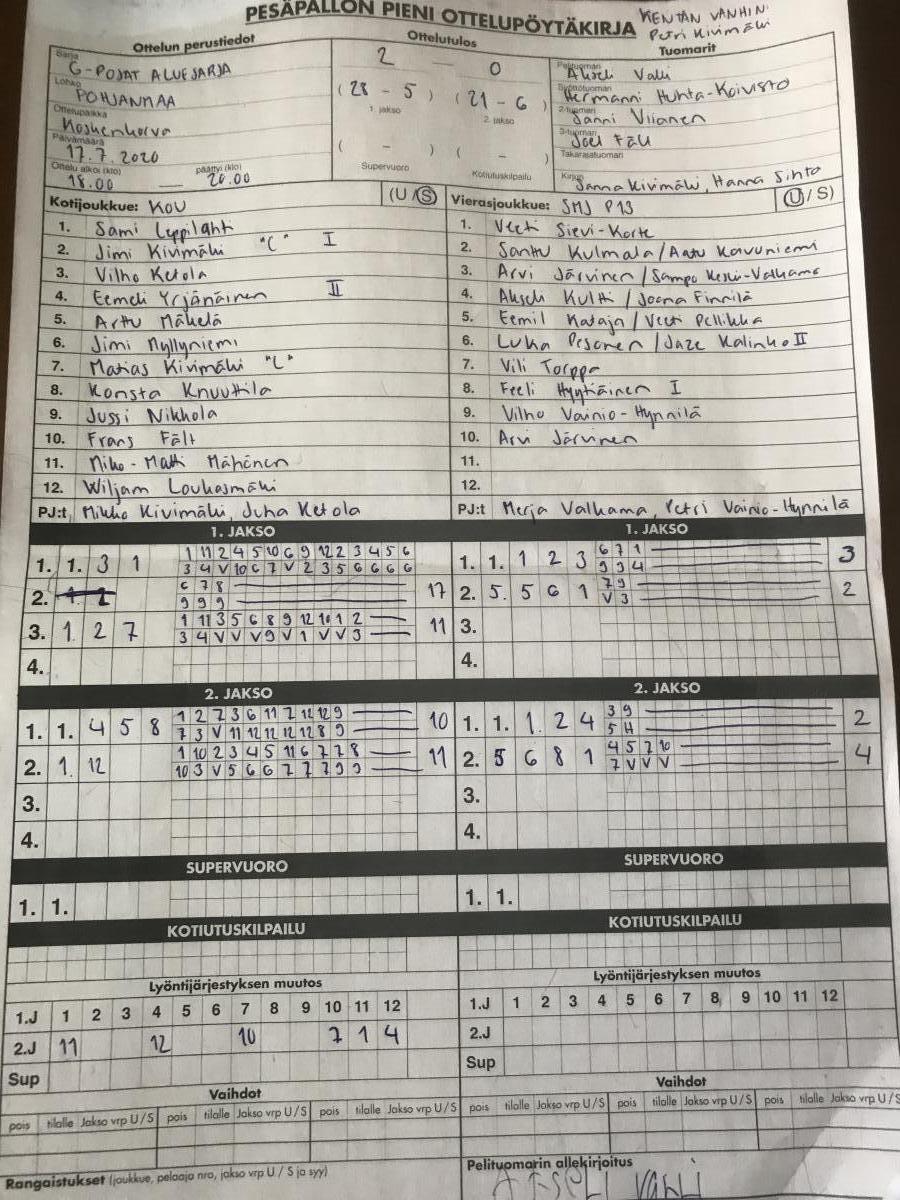 PESÄPALLON PIENI OTTELUPÖYTÄKIRJA
KENTÄN VANHIN:
Petri Kivimäki
Ottelun perustiedot
Ottelutulos
Tuomarit
Sarja
G-POJAT ALUESARJA
2 — 0
Pelituomari
Akseli Valli
Lohko
POHJANMAA
(28 - 5) (21 - 6)
1. jakso 2. jakso
Syöttötuomari
Hermanni Huhta-Koivisto
Ottelupaikka
Koskenkorva
2-tuomari
Sanni Viianen
3-tuomari
Joel Fält
Päivämäärä
17.7.2020
( - ) ( - )
Supervuoro Kotiutuskilpailu
Takarajatuomari
Ottelu alkoi (klo) päättyi (klo)
18.00 — 20.00
Kirjuri
Sanna Kivimäki, Hanna Sihto
Kotijoukkue: KOU (U/S)
Vierasjoukkue: SMJ P13 (U/S)
1. Sami Leppilahti
2. Jimi Kivimäki "C" I
3. Vilho Ketola
4. Eemeli Yrjänäinen II
5. Arttu Mäkelä
6. Jimi Myllyniemi
7. Matias Kivimäki "L"
8. Konsta Knuuttila
9. Jussi Nikkola
10. Frans Fält
11. Niko-Matti Mähönen
12. Wiljam Louhesmäki
PJ:t, Mikko Kivimäki, Juha Ketola
1. Veeti Sievi-Korte
2. Santtu Kulmala / Aatu Koivuniemi
3. Arvi Järvinen / Sampo Keski-Valkama
4. Akseli Kultti / Joona Finnilä
5. Eemil Kataja / Veeti Pellikka
6. Luka Pesonen / Jaze Kalinko II
7. Vili Torppa
8. Feeli Hyytiäinen I
9. Vilho Vainio-Hynnilä
10. Arvi Järvinen
11.
12.
PJ:t, Merja Valkama, Petri Vainio-Hynnilä
1. JAKSO
1. 1. 3 1
1 11 2 4 5 10 6 9 12 2 3 4 5 6
3 4 V 10 6 7 V 2 3 5 6 6 6 6
2.
6 7 8
9 9 9
17
3. 1 2 7
1 11 3 5 6 8 9 12 10 1 2
3 4 V V V 9 V 1 V V 3
11
4.
1. JAKSO
1. 1. 1 2 3
6 7 1
9 9 4
3
2. 5. 5 6 1
7 9
V 3
2
3.
4.
2. JAKSO
1. 1. 4 5 8
1 2 7 3 6 11 7 12 12 9
7 3 V 11 12 12 12 12 8 9
10
2. 1 12
1 10 2 3 4 5 11 6 7 7 8
10 3 V 5 6 6 7 7 7 9 9
11
3.
4.
2. JAKSO
1. 1. 1 2 4
3 9
5 H
2
2. 5 6 8 1
4 5 7 10
7 V V V
4
3.
4.
SUPERVUORO
1. 1.
SUPERVUORO
1. 1.
KOTIUTUSKILPAILU
KOTIUTUSKILPAILU
Lyöntijärjestyksen muutos
1.J 1 2 3 4 5 6 7 8 9 10 11 12
2.J 11 12 10 7 1 4
Sup
Lyöntijärjestyksen muutos
1.J 1 2 3 4 5 6 7 8 9 10 11 12
2.J
Sup
Vaihdot
pois tilalle Jakso vrp U/S pois tilalle Jakso vrp U/S pois tilalle Jakso vrp U/S
Vaihdot
pois tilalle Jakso vrp U/S pois tilalle Jakso vrp U/S pois tilalle Jakso vrp U/S
Rangaistukset (joukkue, pelaaja nro, jakso vrp U / S ja syy)
Pelituomarin allekirjoitus
Akseli Valli